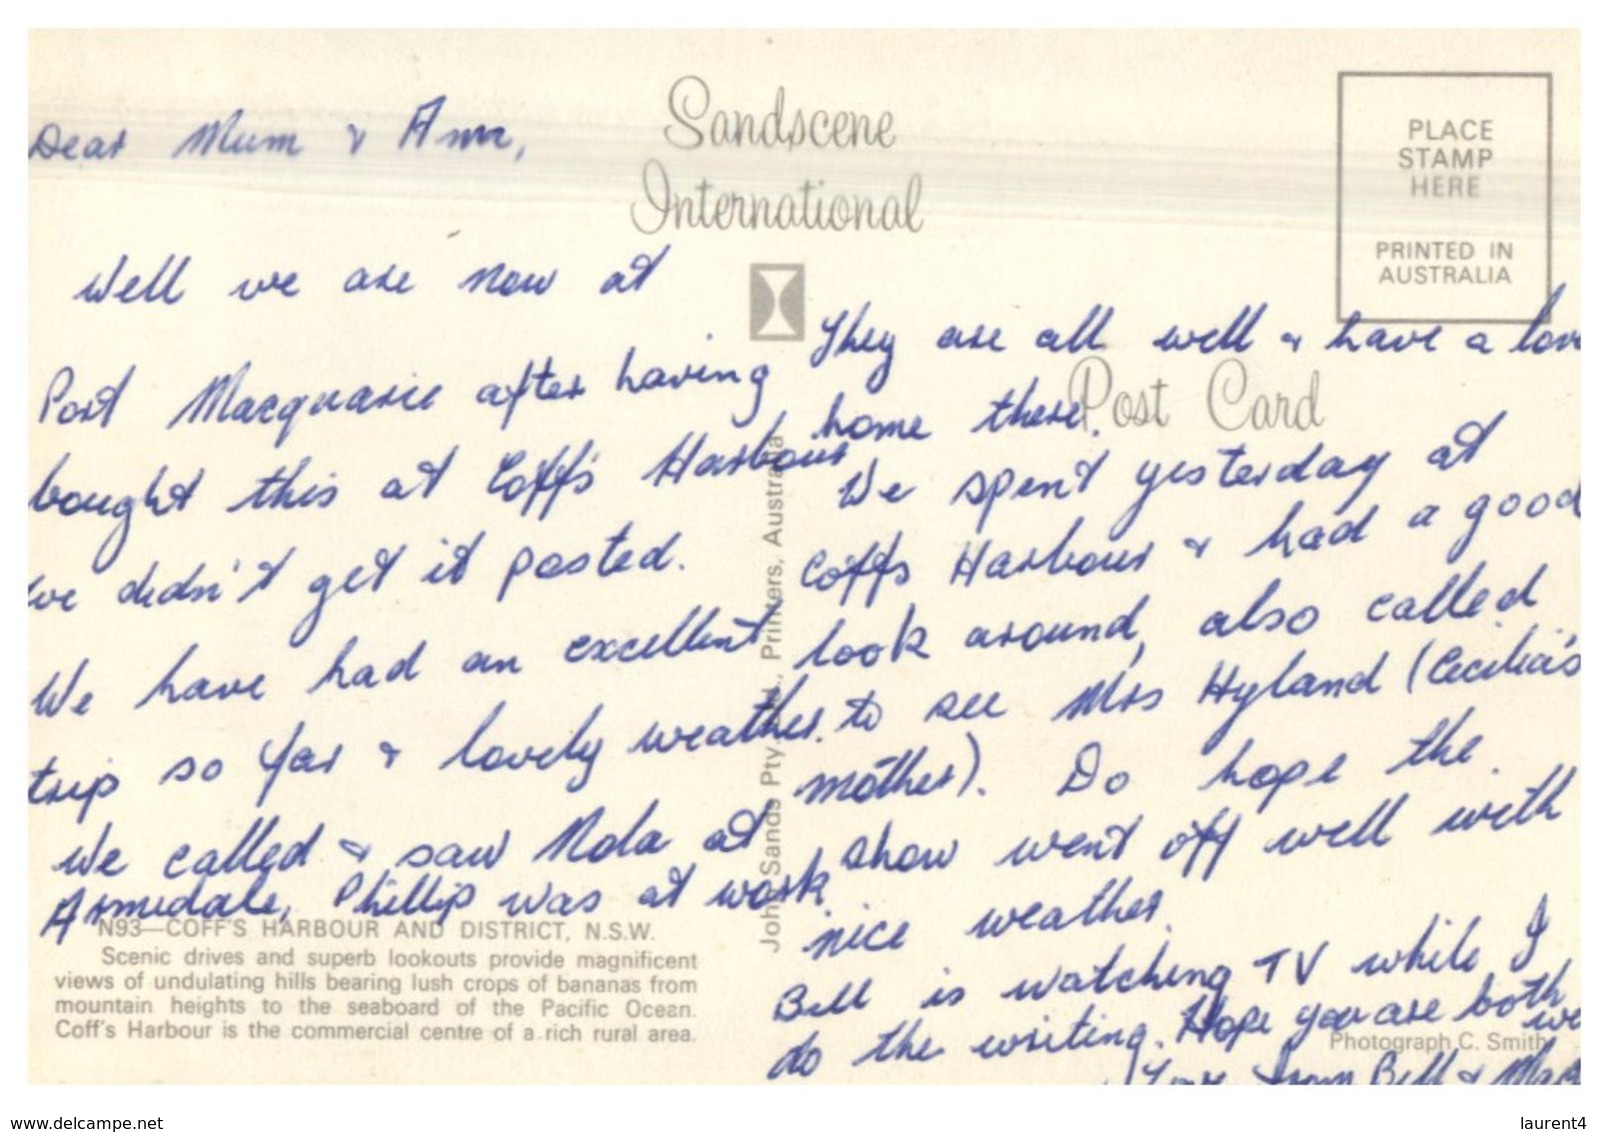 Sandscene
International
PLACE
STAMP
HERE
PRINTED IN
AUSTRALIA
Post Card
Dear Mum & Ann,
Well we are now at
Port Macquarie after having
bought this at Coffs Harbour
we didn't get it posted.
We have had an excellent
trip so far & lovely weather.
We called & saw Nola at
Armidale, Phillip was at work
They are all well & have a lov
home there.
We spent yesterday at
Coffs Harbour & had a good
look around, also called
to see Mrs Hyland (Cecilia's
mother). Do hope the
show went off well with
nice weather.
Bill is watching TV while I
do the writing. Hope you are both
we
Love from Bill &
John Sands Pty. Ltd., Printers, Australia
N93—COFF'S HARBOUR AND DISTRICT, N.S.W.
Scenic drives and superb lookouts provide magnificent
views of undulating hills bearing lush crops of bananas from
mountain heights to the seaboard of the Pacific Ocean.
Coff's Harbour is the commercial centre of a rich rural area.
Photograph C. Smith
www.delcampe.net
laurent4